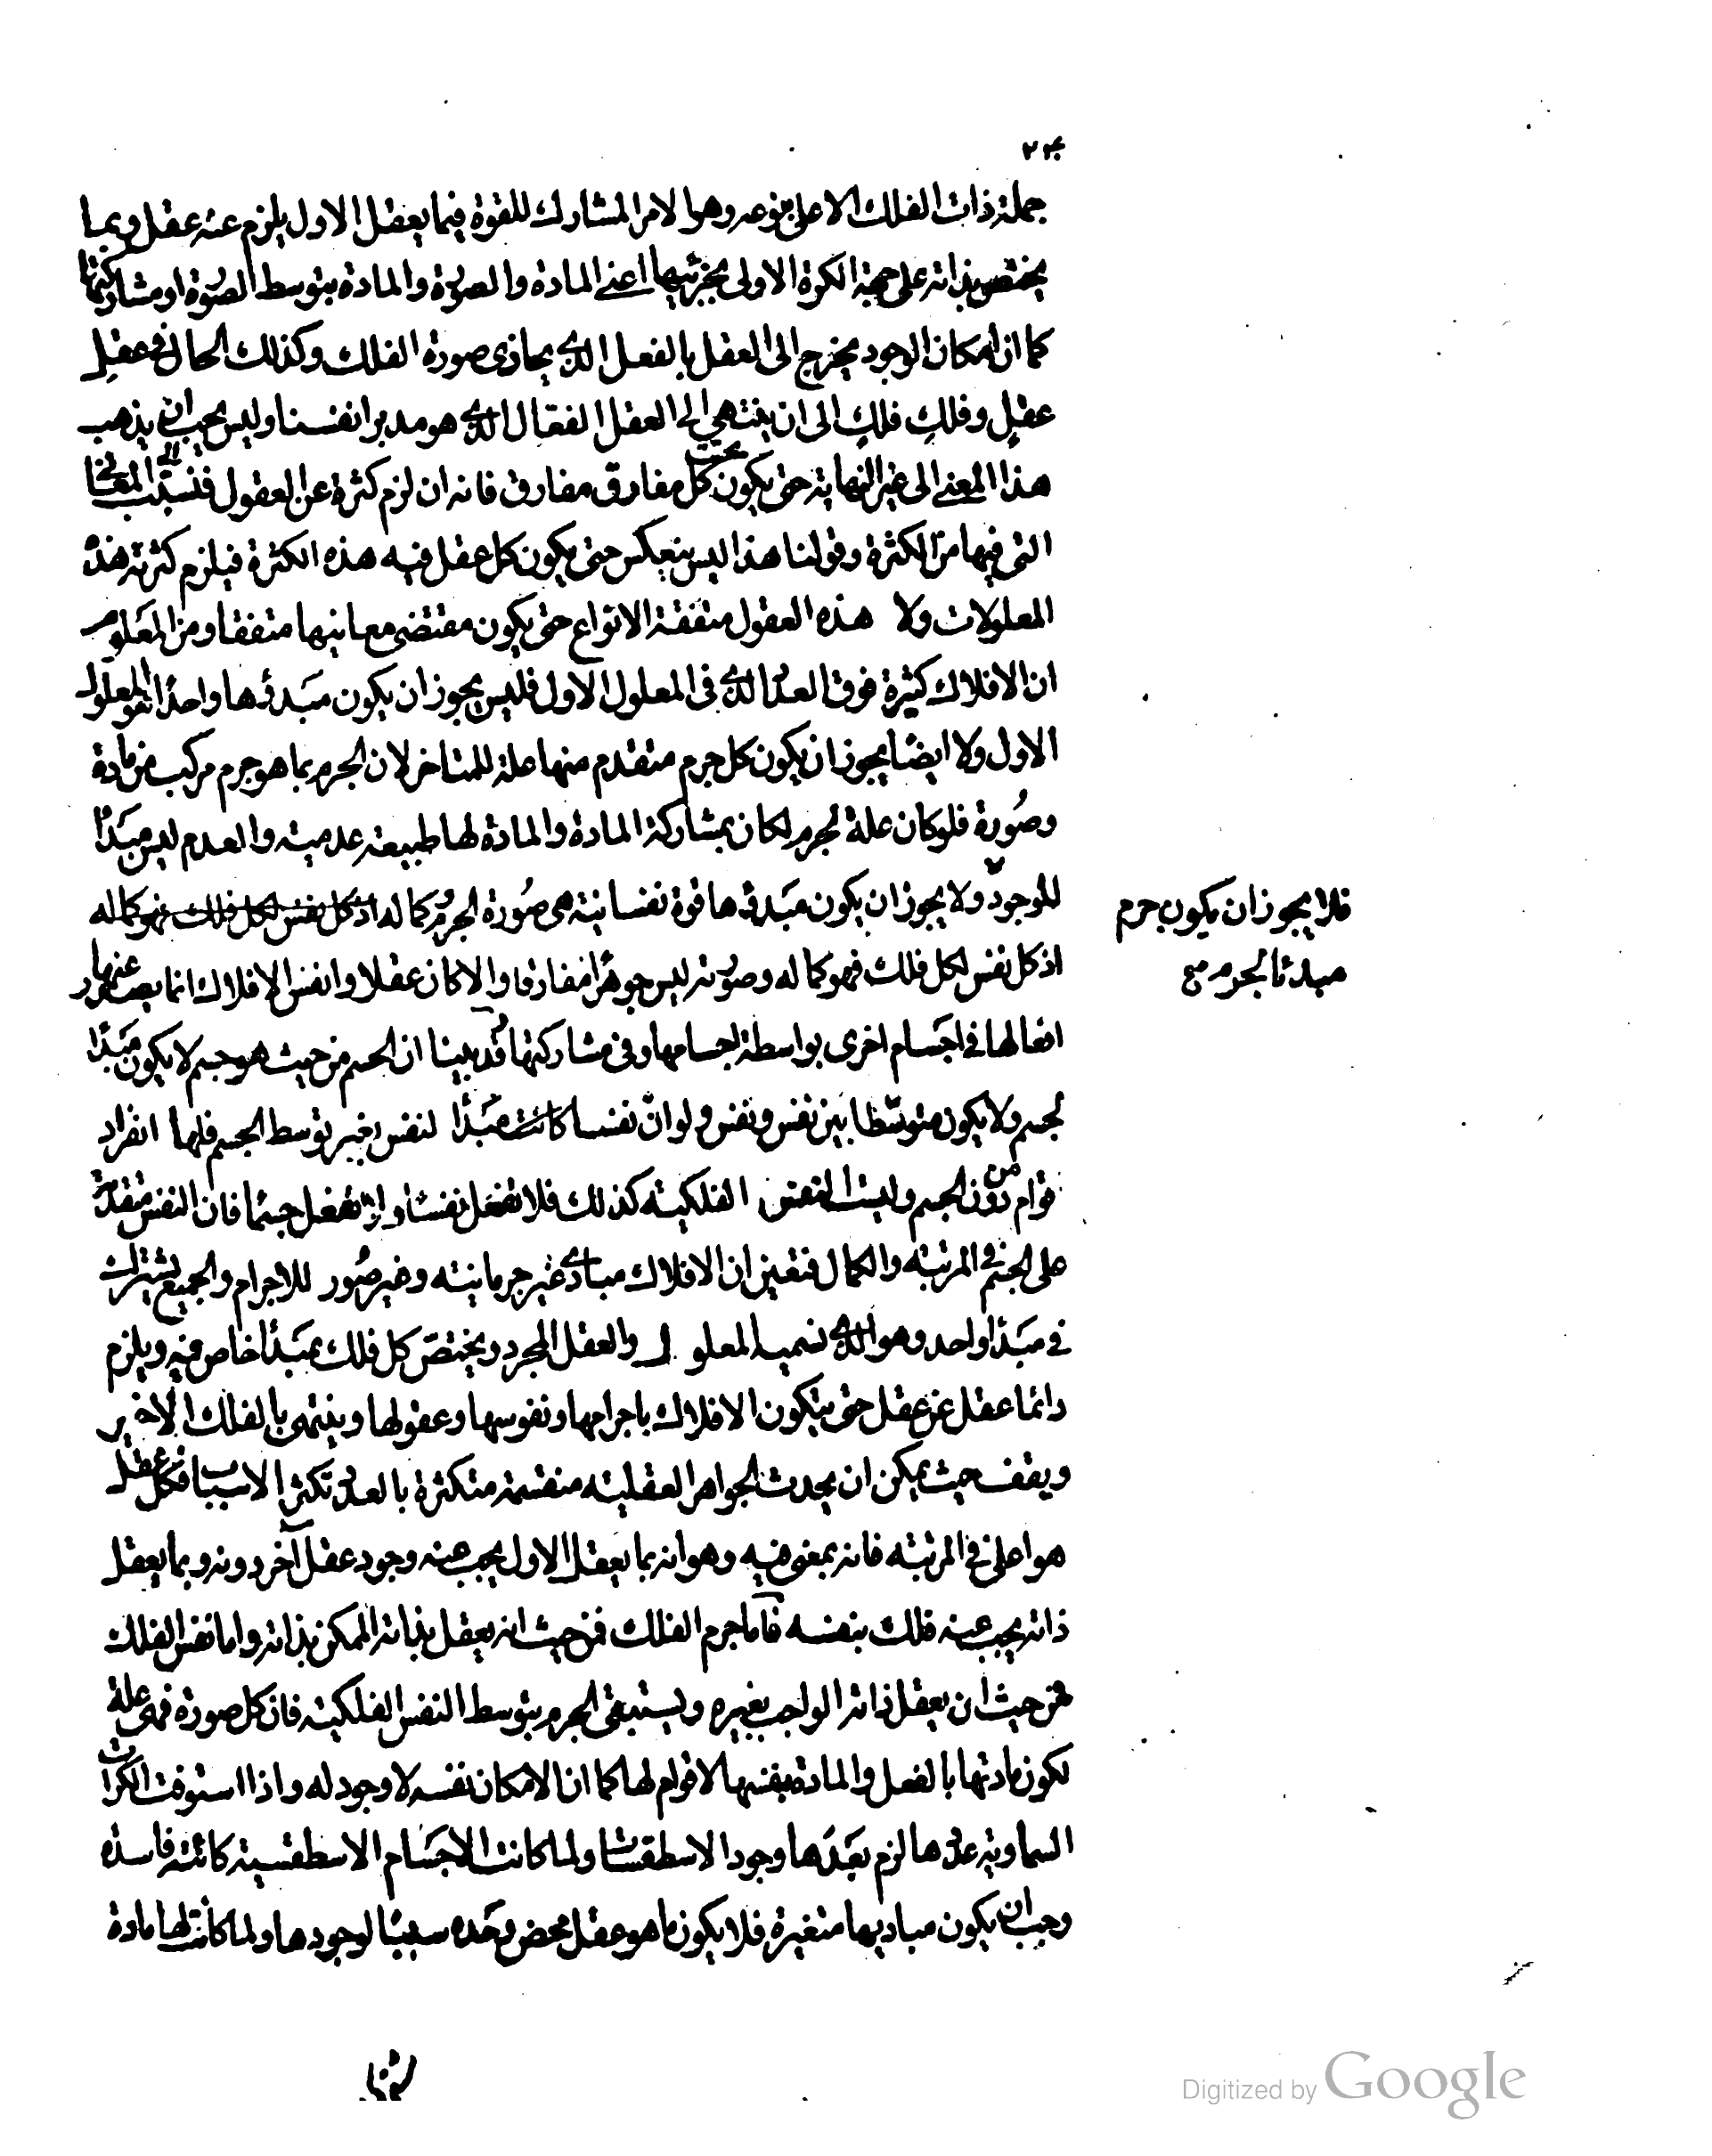 جملة ذات الفلك الاعلى بنوعه وهو الامر المشارك للقوة فبما يعقل الاول يلزم عنه عقل وبما
يختص بذاته على جهة الكرة الاولى بجزئيها اعنى المادة والصورة والمادة بتوسط الصورة او مشاركتها
كما ان امكان الوجود يخرج الى العقل بالفعل الذى يحاذى صورة الفلك وكذلك الحال فى عقل
عقل وفلك فلك الى ان ينتهى الى العقل الفعال الذى هو مدبر انفسنا وليس يجب ان يذهب
هذا المعنى الى غير النهاية حتى يكون تحت كل مفارق مفارق فانه ان لزم كثرة عن العقول فنسبت الى المعانى
التى فيها من الكثرة وقولنا هذا ليس ينعكس حتى يكون كل عقل فيه هذه الكثرة فيلزم كثرته هذه
المعلولات ولا هذه العقول متفقة الانواع حتى يكون مقتضى معانيها متفقا ومن المعلوم
ان الافلاك كثيرة فوق العدد الذى فى المعلول الاول فليس يجوز ان يكون مبدئها واحدا هو المعلول
الاول ولا ايضا يجوز ان يكون كل جرم متقدم منها علة للمتاخر لان الجرم بما هو جرم مركب من مادة
وصورة فلو كان علة لجرم لكان بمشاركة المادة والمادة لها طبيعة عدمية والعدم ليس مبدئا
للوجود ولا يجوز ان يكون مبدئها قوة نفسانية هى صورة الجرم وكماله اذ كل نفس لكل فلك فهو كماله
فلا يجوز ان يكون جرم
مبدئا لجرم صح
اذ كل نفس لكل فلك فهو كماله وصورته ليس جوهرا مفارقا والا كان عقلا وانفس الافلاك انما يصدر عنها
افعالها فى اجسام اخرى بواسطة اجسامها وفى مشاركتها وقد بينا ان الجسم من حيث هو جسم لا يكون مبدئا
لجسم ولا يكون متوسطا بين نفس ونفس ولو ان نفسا كانت مبدئا لنفس بغير توسط الجسم فلها انفراد
قوام من دون الجسم وليست النفس الفلكية كذلك فلا تفعل نفسا ولا تفعل جسما فان النفس متقدمة
على الجسم فى المرتبة والكمال فتعين ان الافلاك مبادى غير جرمانية وغير صور للاجرام والجميع يشترك
فى مبدئا واحد وهو الذى نسميه المعلول والعقل المجرد ويختص كل فلك بمبدئا خاص فيه ويلزم
دائما عقل عن عقل حتى يتكون الافلاك باجرامها ونفوسها وعقولها وينتهى بالفلك الاخير
ويقف حيث يمكن ان يحدث الجواهر العقلية منقسمة متكثرة بالعدد تكثر الاسباب فكل عقل
هو اعلى فى المرتبة فانه بمعنى فيه وهو انه بما يعقل الاول يجب عنه وجود عقل آخر دونه وبما يعقل
ذاته يجب عنه فلك بنفسه فاما جرم الفلك فمن حيث انه يعقل بذاته الممكن بذاته واما نفس الفلك
فمن حيث ان يعقل ذاته الواجب بغيره ويستبقى الجرم بتوسط النفس الفلكية فان كل صورة فهى علة
لكون مادتها بالفعل والمادة بنفسها لا قوام لها كما ان الامكان نفسه لا وجود له واذا استوفت الكرات
السماوية عددها لزم بعدها وجود الاسطقسات ولما كانت الاجسام الاسطقسية كائنة فاسدة
وجب ان يكون مباديها متغيرة فلا يكون ما هو عقل محض وحده سببا لوجودها ولما كانت لها مادة
Digitized by Google